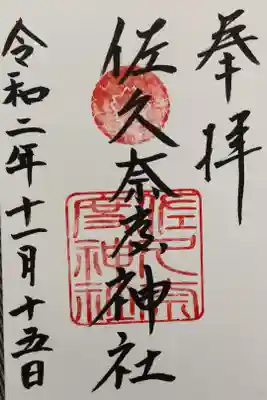 奉拝
佐久奈度神社
佐久奈
度神社
令和二年十一月十五日